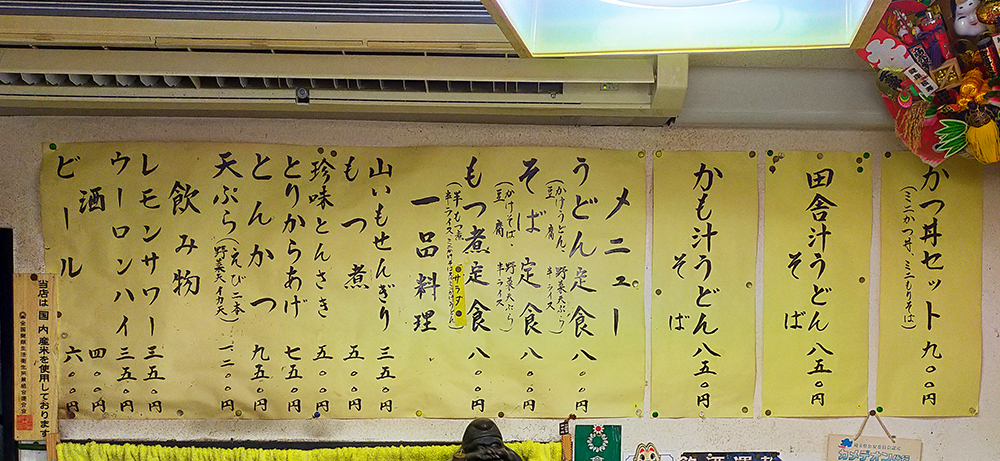 かつ丼セット 九〇〇円
(ミニかつ丼、ミニもりそば)
田舎汁うどん 八五〇円
そば
かも汁うどん 八五〇円
そば
メニュー
うどん定食 八〇〇円
(かけうどん、野菜天ぷら)
豆腐 半ライス
そば定食 八〇〇円
(かけそば・野菜天ぷら)
豆腐 半ライス
もつ煮定食 八〇〇円
サラダ
一品料理
山いもせんぎり 三五〇円
もつ煮 五〇〇円
珍味とんさき 五〇〇円
とりからあげ 七五〇円
とんかつ 九五〇円
天ぷら(えび二本 一二〇〇円
野菜天イカ天)
飲み物
レモンサワー 三五〇円
ウーロンハイ 三五〇円
酒 四〇〇円
ビール 六〇〇円
当店は国内産米を使用しております